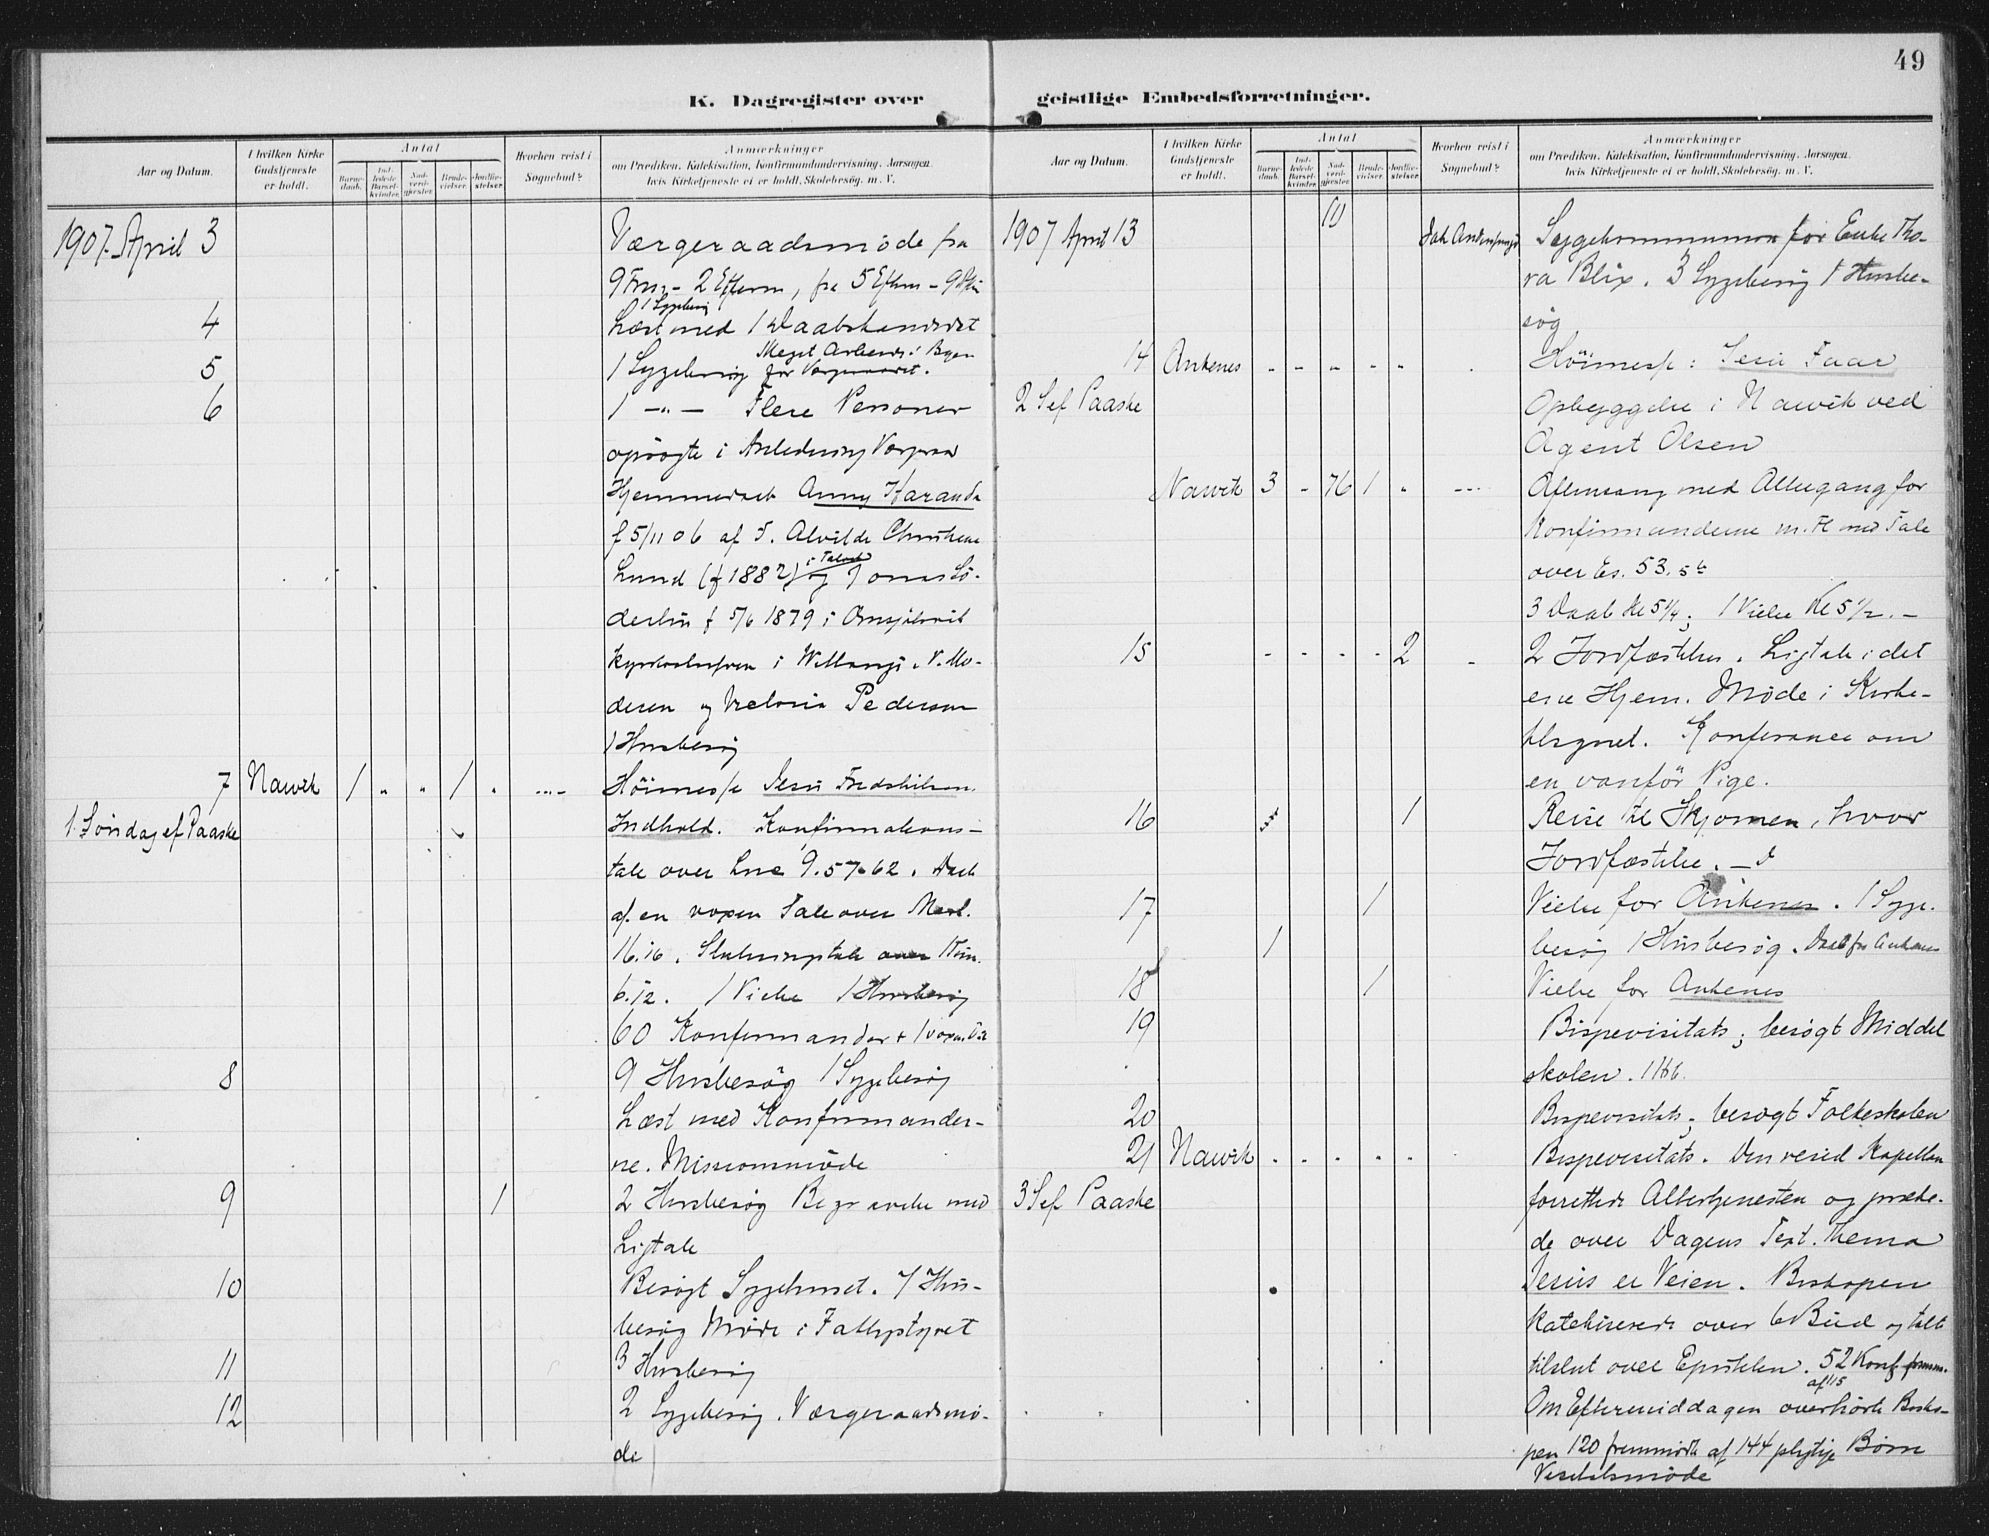 49
K. Dagregister over geistlige Embedsforretninger.
Aar og Datum.
I hvilken Kirke Gudstjeneste er holdt.
Antal
Barne-daab.
Ind-ledede Barsel-kvinder.
Nad-verd-gjester.
Brude-vielser.
Jordfæ-stelser.
Hvorhen reist i Sognebud?
Anmærkninger
om Prædiken, Katekisation, Konfirmandundervisning. Aarsagen, hvis Kirketjeneste ei er holdt, Skolebesøg. m. V.
1907. April 3 Værgeraadsmøde fra
9 Frm - 2 Efterm, fra 5 Efterm - 9 Eftm
1 Sygebesøg
4 Læst med 1 Daabskandidat
Meget Arbeide i Byen
5 1 Sygebesøg for Værgeraadet.
6 1 -"- Flere Personer
opsøgte i Anledning Værgeraad
Hjemmedaab Anny Haranda
f 5/11 06 af T. Alvilde Christiane
Lund (f 1882) og Jonas Sö-
derlin f 5/6 1879 i
i
deren og Pedersen
1 Husbesøg
7 Narvik 1 " " 1 " Höimesse Jesu Fredshilsen.
1. Söndag ef Paaske Indhold. Konfirmations-
tale over Luc 9.57-62. Daab
af en voxen Tale over Mark.
16.16. Slutningstale over 1 Tim.
6.12. 1 Vielse 1 Husbesøg
60 Konfirmander + 1 voxen
8 9 Husbesøg 1 Sygebesøg
Læst med Konfirmander-
ne. Missionsmøde
9 1 2 Husbesøg Begravelse med
Ligtale
10 Besøgt Sygehuset. 7 Hus-
besøg Møde i Fattigstyret
11 3 Husbesøg
12 2 Sygebesøg. Værgeraadsmø-
de
Aar og Datum.
I hvilken Kirke Gudstjeneste er holdt.
Antal
Barne-daab.
Ind-ledede Barsel-kvinder.
Nad-verd-gjester.
Brude-vielser.
Jordfæ-stelser.
Hvorhen reist i Sognebud?
Anmærkninger
om Prædiken, Katekisation, Konfirmandundervisning. Aarsagen, hvis Kirketjeneste ei er holdt, Skolebesøg. m. V.
1907 April 13 10 Sygekommunion for Enke Tho-
ra Blix. 3 Sygebesøg 1 Husbe-
søg
14 Ankenes - - - - - Höimesse: Jesu Faar
2 S ef Paaske Opbyggelse i Narvik ved
Agent Olsen
Narvik 3 - 76 1 - Aftensang med Altergang for
Konfirmanderne m. Fl med Tale
over Es. 53. 5
3 Daab Kl 5¼; 1 Vielse Kl 5½. -
15 - - - - 2 - 2 Jordfæstelser. Ligtale i det
ene Hjem. Møde i Kirke-
tilsynet. Konferance om
en vanför Pige.
16 1 Reise til Skjomen, hvor
Jordfæstelse.
17 1 Vielse for Ankenes. 1 Syge-
1 besøg 1 Husbesøg. Daab for Ankenes
18 1 Vielse for Ankenes
19 Bispevisitats; besøgt Middel
skolen. 1 Hb.
20 Bispevisitats; besøgt Folkeskolen
21 Narvik - - - - - Bispevisitats. Den resid Kapellan
3 S ef Paaske forrettede Altertjenesten og præke-
de over Dagens Text. Thema
Jesus er Veien. Biskopen
katekiserede over 6 Bud og talte
tilslut over Epistelen. 52 Konf fremm.
af 115
Om Eftermiddagen overhörte Bisko-
pen 120 fremmödte af 144 pligtige Børn
Visitatsmøde